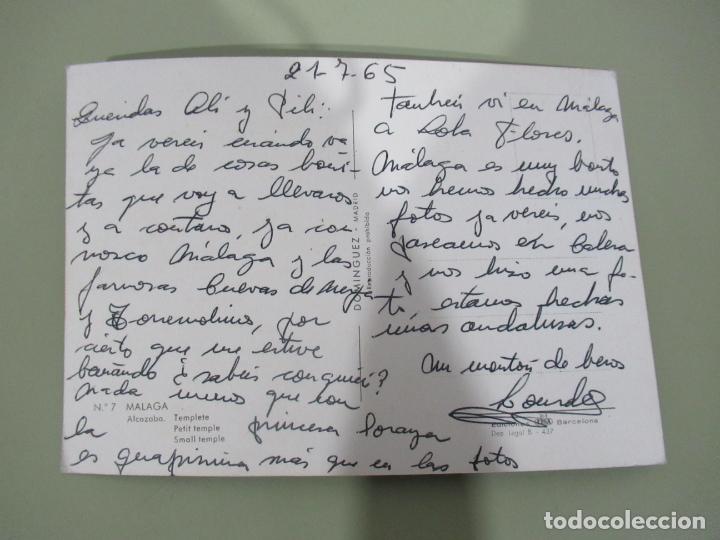 21-7-65
Queridas Ali y Pili:
Ya vereis cuándo va
ya la de cosas boni-
tas que voy a llevaros
y a contaros, ya co
nozco Málaga y las
famosas cuevas de Nerja
y Torremolino, por
cierto que me estuve
bañando ¿sabéis con quién?
nada menos que con
la princesa Soraya
es guapisima más que en las fotos
También vi en Málaga
a Lola Flores.
Málaga es muy bonito
nos hemos hecho muchas
fotos ya vereis, nos
paseamos en Calesa
y nos hizo una fo-
to, estamos hechas
unas andaluzas.
Un montón de besos
Lourdes
DOMINGUEZ - MADRID
Reproducción prohibida
N.º 7 MALAGA
Alcazaba. Templete
Petit temple
Small temple
Ediciones Barcelona
Dep. legal B. - 437
todocoleccion.net